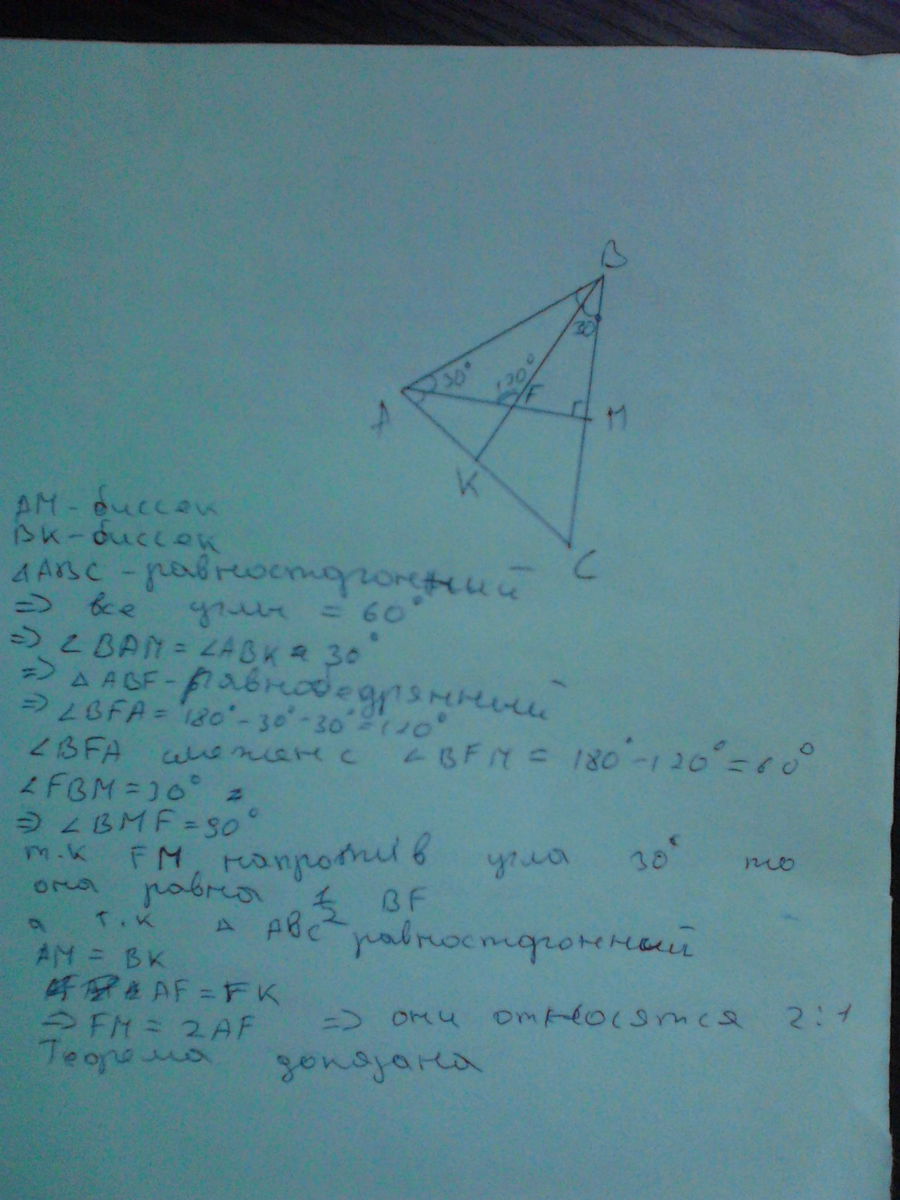 B
30
30°
120°
F
A
M
K
C
AM - биссек
BK - биссек
△ABC - равносторонний
=> все углы = 60°
=> ∠BAM = ∠ABK = 30°
=> △ABF - равнобедрянный
=> ∠BFA = 180° - 30° - 30° = 120°
∠BFA смежен с ∠BFM = 180° - 120° = 60°
∠FBM = 30°
=> ∠BMF = 90°
т.к FM напротив угла 30° то
она равна 1/2 BF
а т.к △ ABC равносторонний
AM = BK
AF = FK
=> FM = 2AF => они относятся 2:1
Теорема доказана